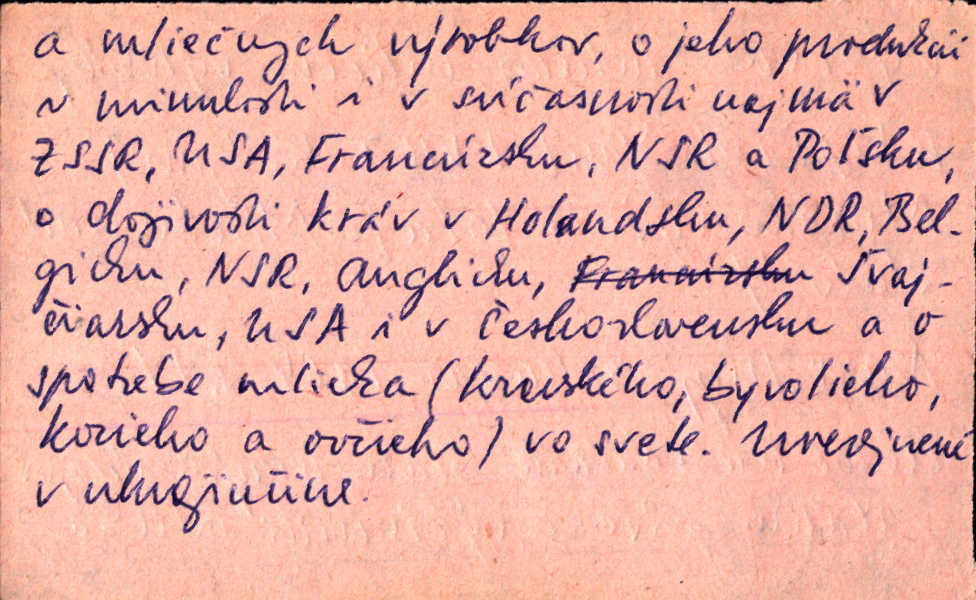 a mliečnych výrobkov, o jeho produkcii
v minulosti i v súčasnosti najmä v
ZSSR, USA, Francúzsku, NSR a Poľsku,
o dojivosti kráv v Holandsku, NDR, Bel-
gicku, NSR, Anglicku, Francúzsku Švaj-
čiarsku, USA i v Československu a o
spotrebe mlieka (kravského, byvolieho,
kozieho a ovčieho) vo svete. Uverejnené
v ukrajinčine.